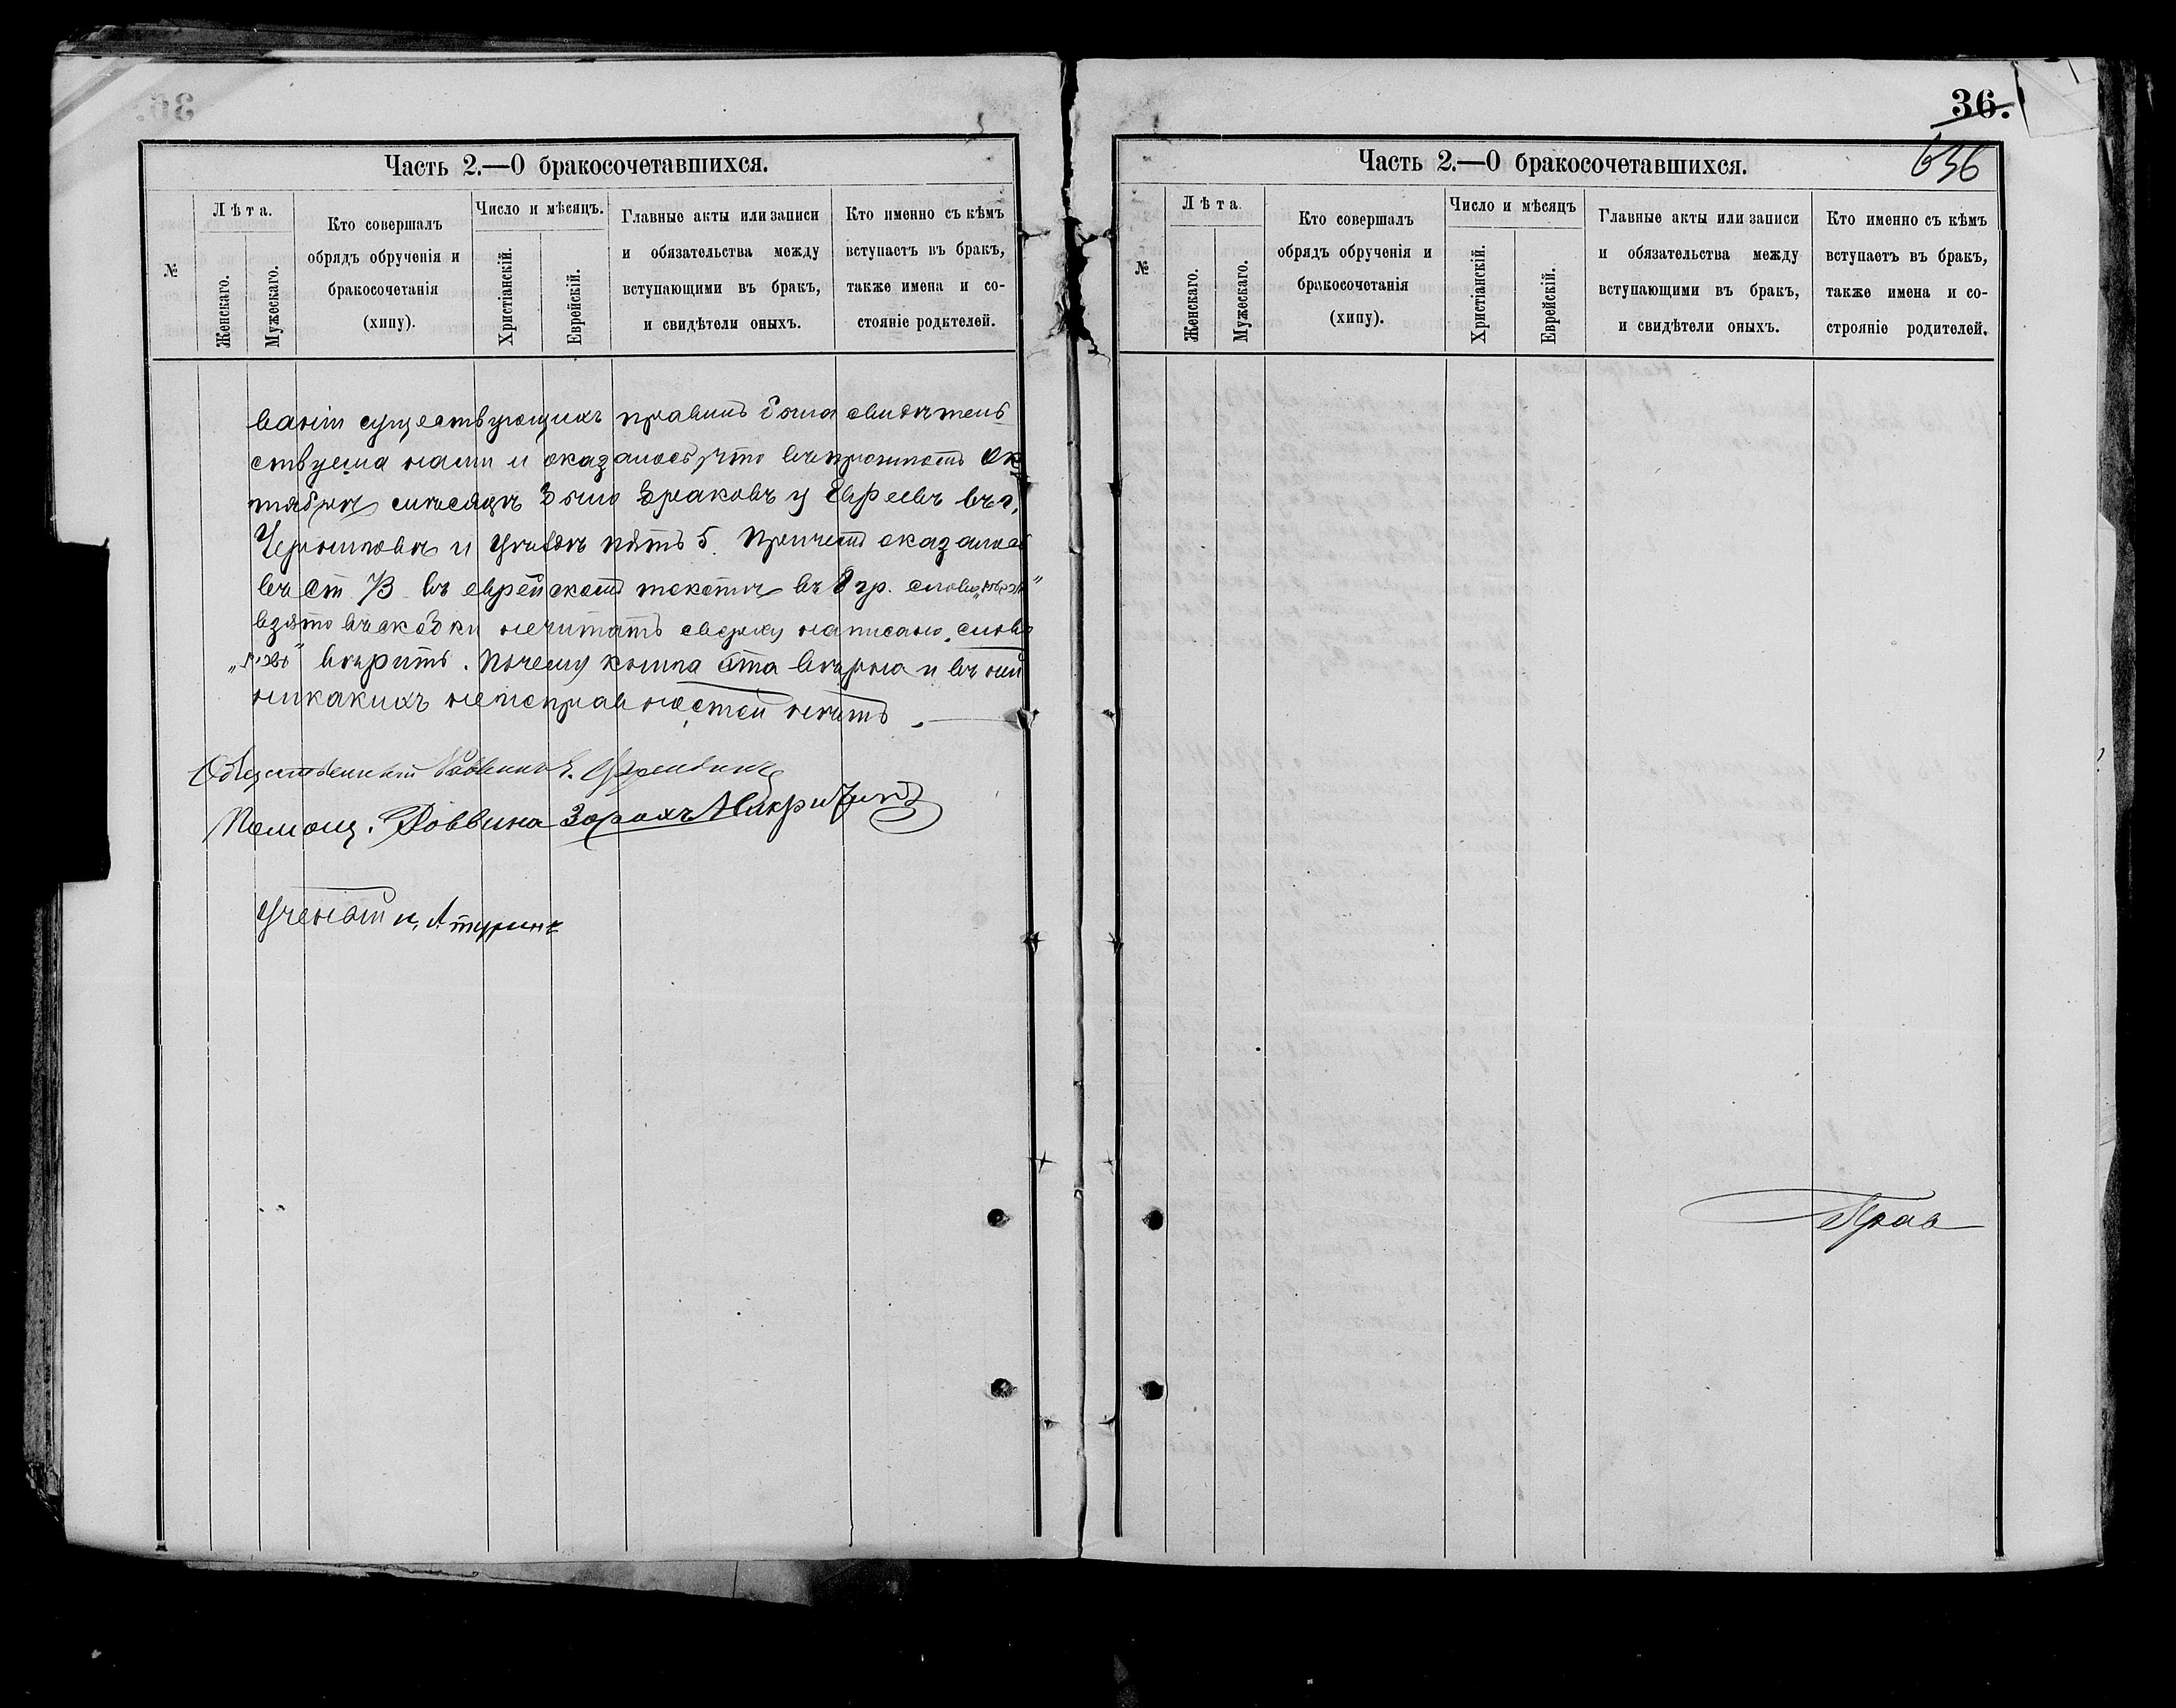 36.
636
Часть 2.—О бракосочетавшихся.
№
Лѣта.
Женскаго.
Мужескаго.
Кто совершалъ
обрядъ обрученія и
бракосочетанія
(хипу).
Число и мѣсяцъ.
Христіанскій.
Еврейскій.
Главные акты или записи
и обязательства между
вступающими въ бракъ,
и свидѣтели оныхъ.
Кто именно съ кѣмъ
вступаетъ въ бракъ,
также имена и со-
стояніе родктелей.
ваніи существующихъ правилъ была свидѣтель
ствуема нами и оказалось, что въ Ок
тябрѣ мѣсяцѣ было браковъ у Евреевъ въ г.
Черниговѣ и уѣздѣ пять 5. Причемъ оказалось
въ ст. въ еврейскомъ текстѣ въ 8 гр. слово
взято въ скобки нечитать сверху написано слово
вѣрить. Почему книга эта вѣрна и въ ней
никакихъ неисправностей нѣтъ.
Общественный Раввинъ
Помощ. Раввина Зорахъ
Ученый
Часть 2.—О бракосочетавшихся.
№
Лѣта.
Женскаго.
Мужескаго.
Кто совершалъ
обрядъ обрученія и
бракосочетанія
(хипу).
Число и мѣсяцъ
Христіанскій.
Еврейскій.
Главные акты или записи
и обязательства между
вступающими въ бракъ,
и свидѣтели оныхъ.
Кто именно съ кѣмъ
вступаетъ въ бракъ,
также имена и со-
строяніе родителей.